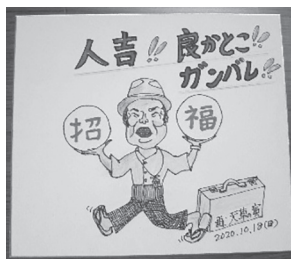 人吉!! 良かとこ!!
ガンバレ!!
招
福
2020.10.18(日)